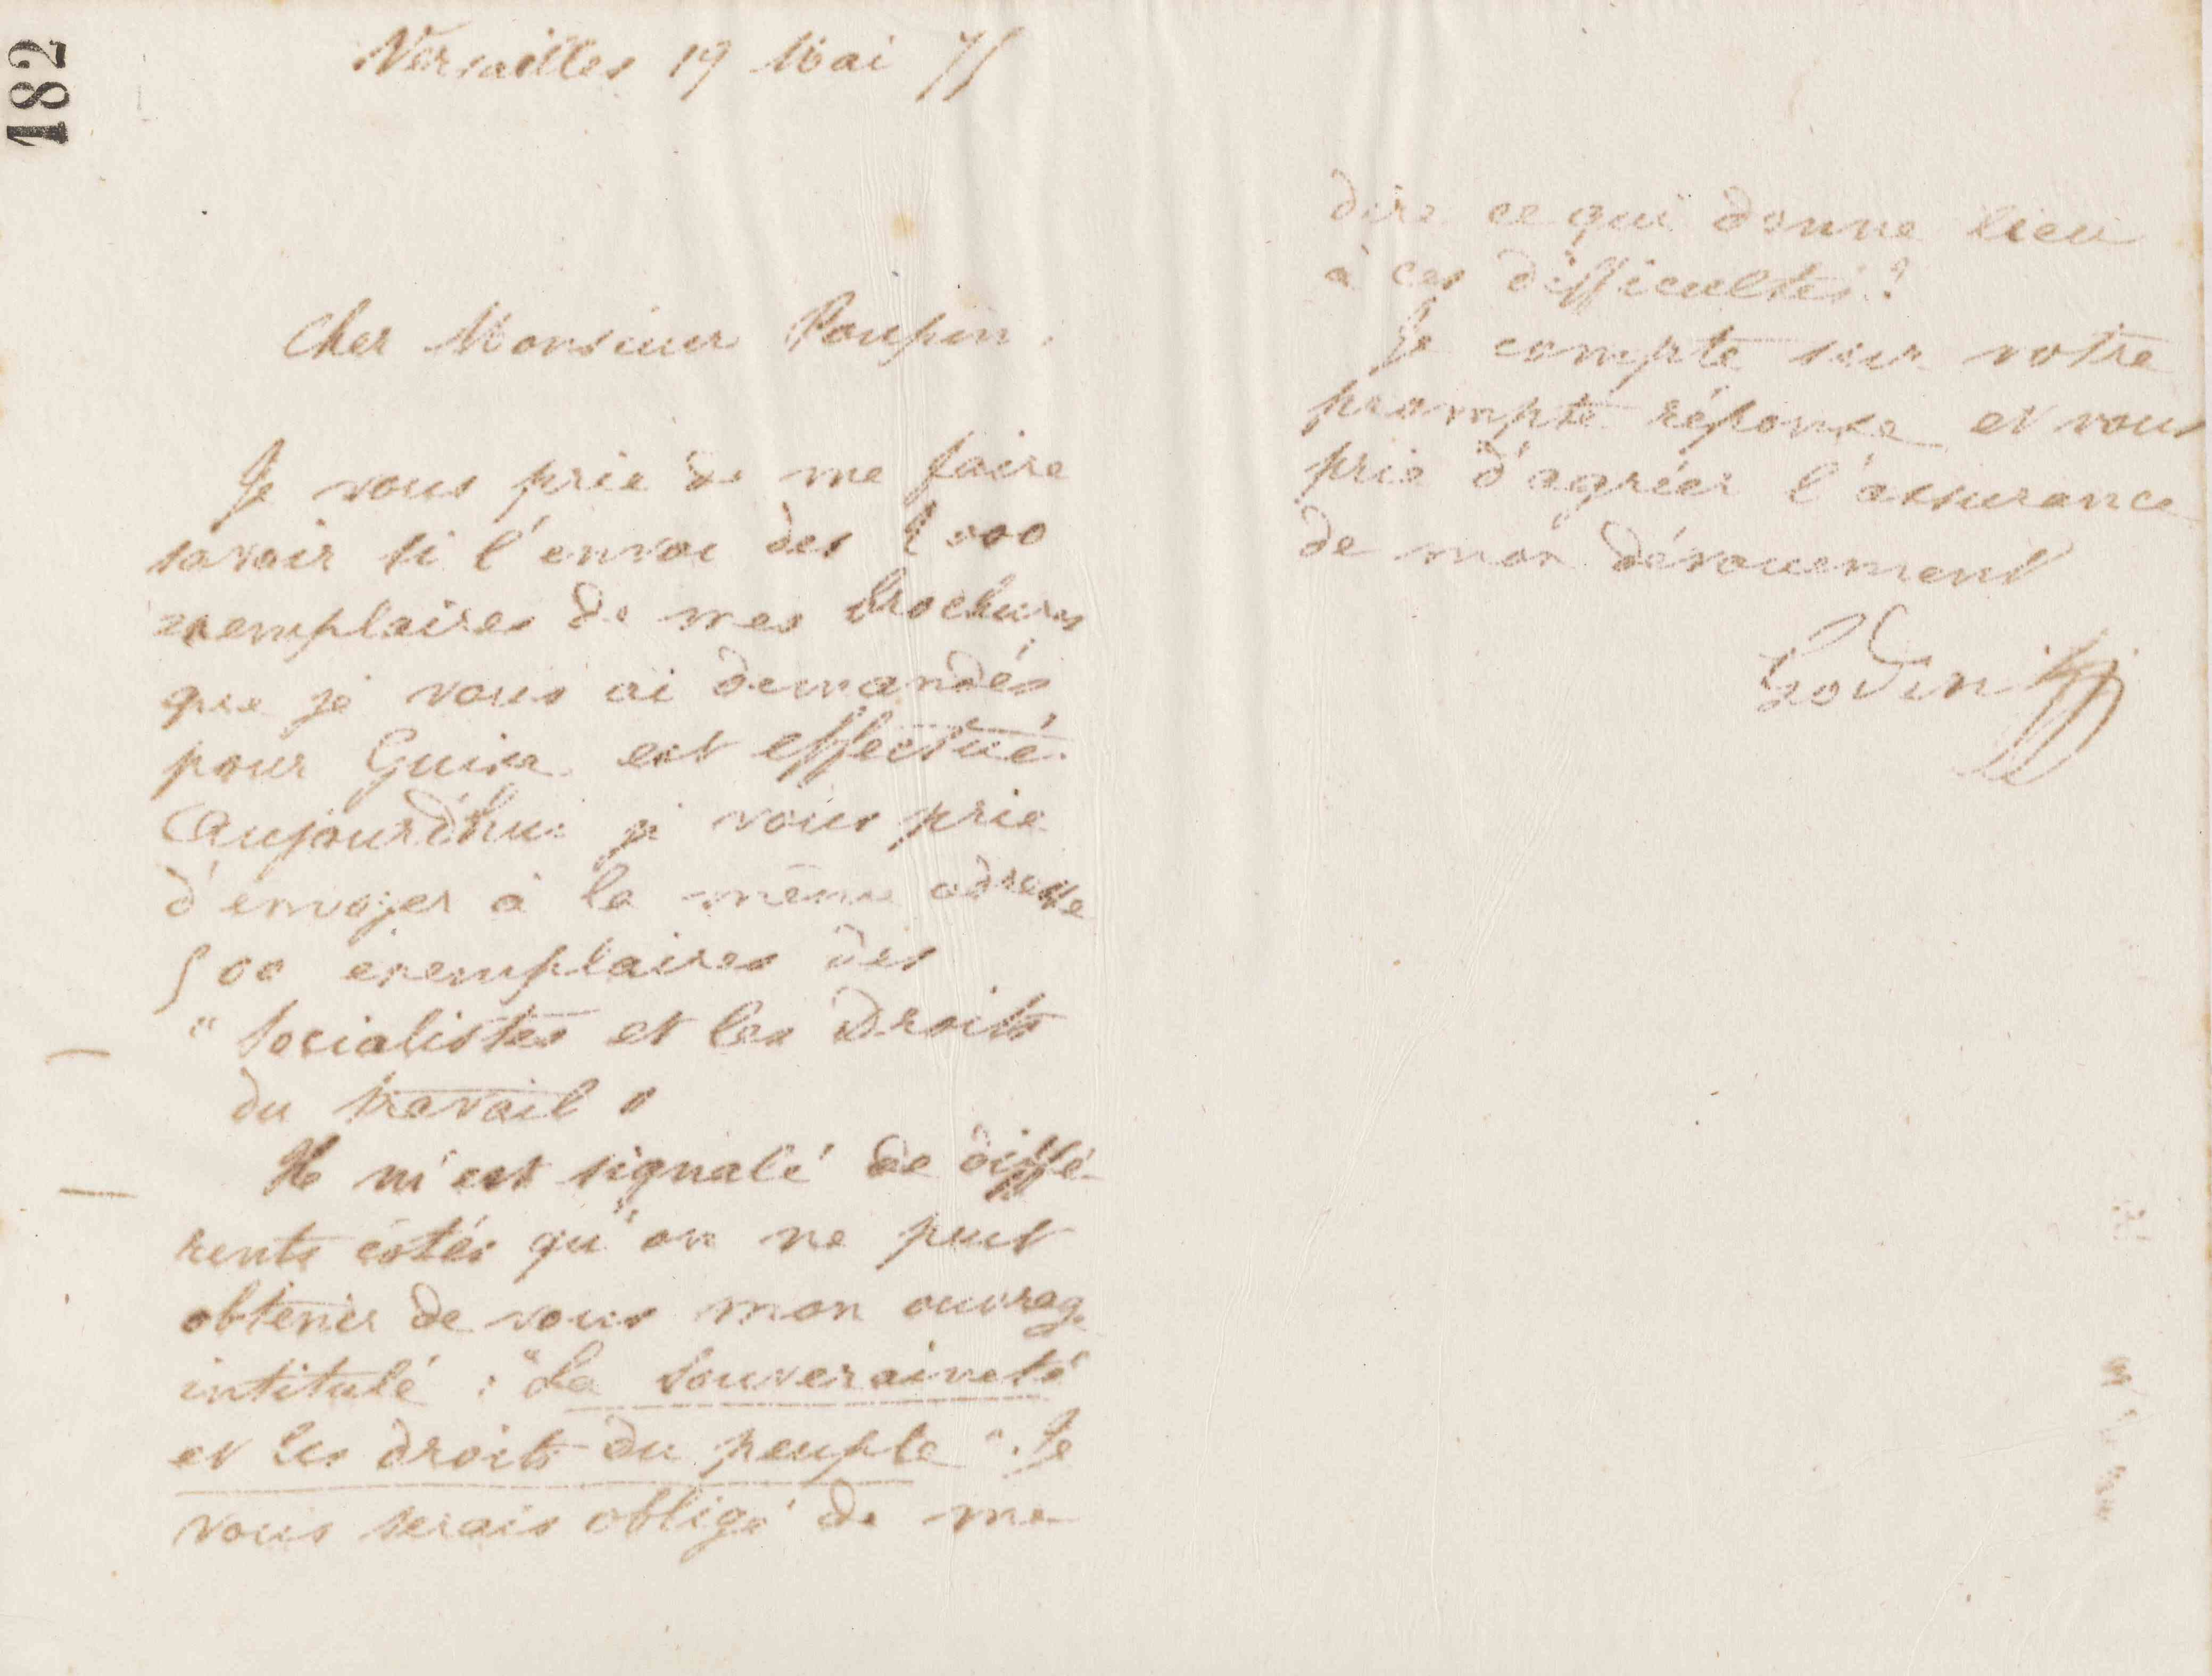 182
Versailles 19 Mai 75
Cher Monsieur Poupin.
Je vous prie de me faire
savoir si l'envoi des 2000
exemplaires de mes brochures
que je vous ai demandés
pour Guise est effectué.
Aujourd'hui je vous prie
d'envoyer à la même adresse
500 exemplaires des
"Socialistes et les Droits
du travail"
Il m'est signalé de diffé-
rents côtés qu'on ne peut
obtenir de vous mon ouvrage
intitulé : "La Souveraineté
et les droits du peuple". Je
vous serais obligé de me
dire ce qui donne lieu
à ces difficultés ?
Je compte sur votre
prompte réponse et vous
prie d'agréer l'assurance
de mon dévouement
Godin